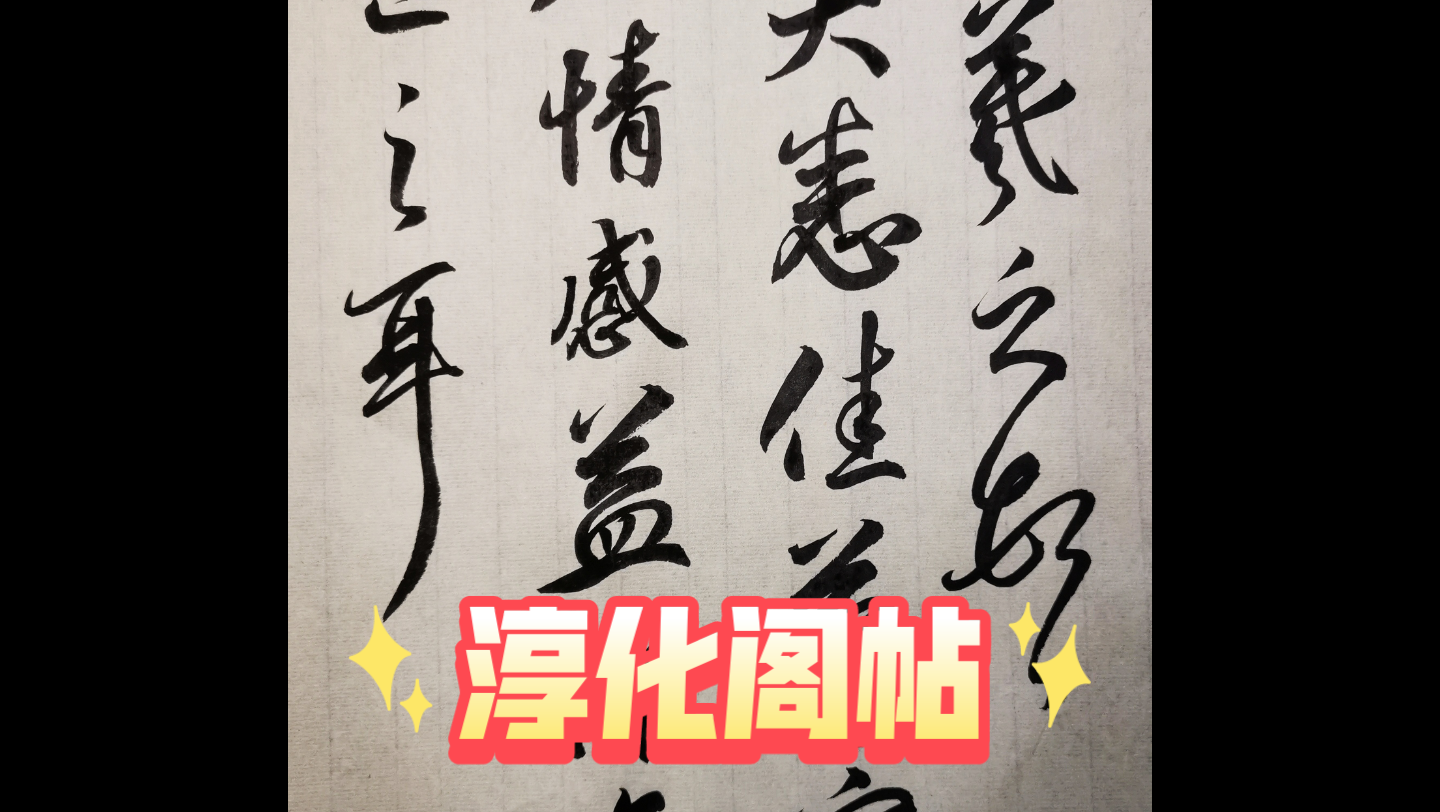 羲之敬
大悉佳
情感益
之耳
淳化阁帖